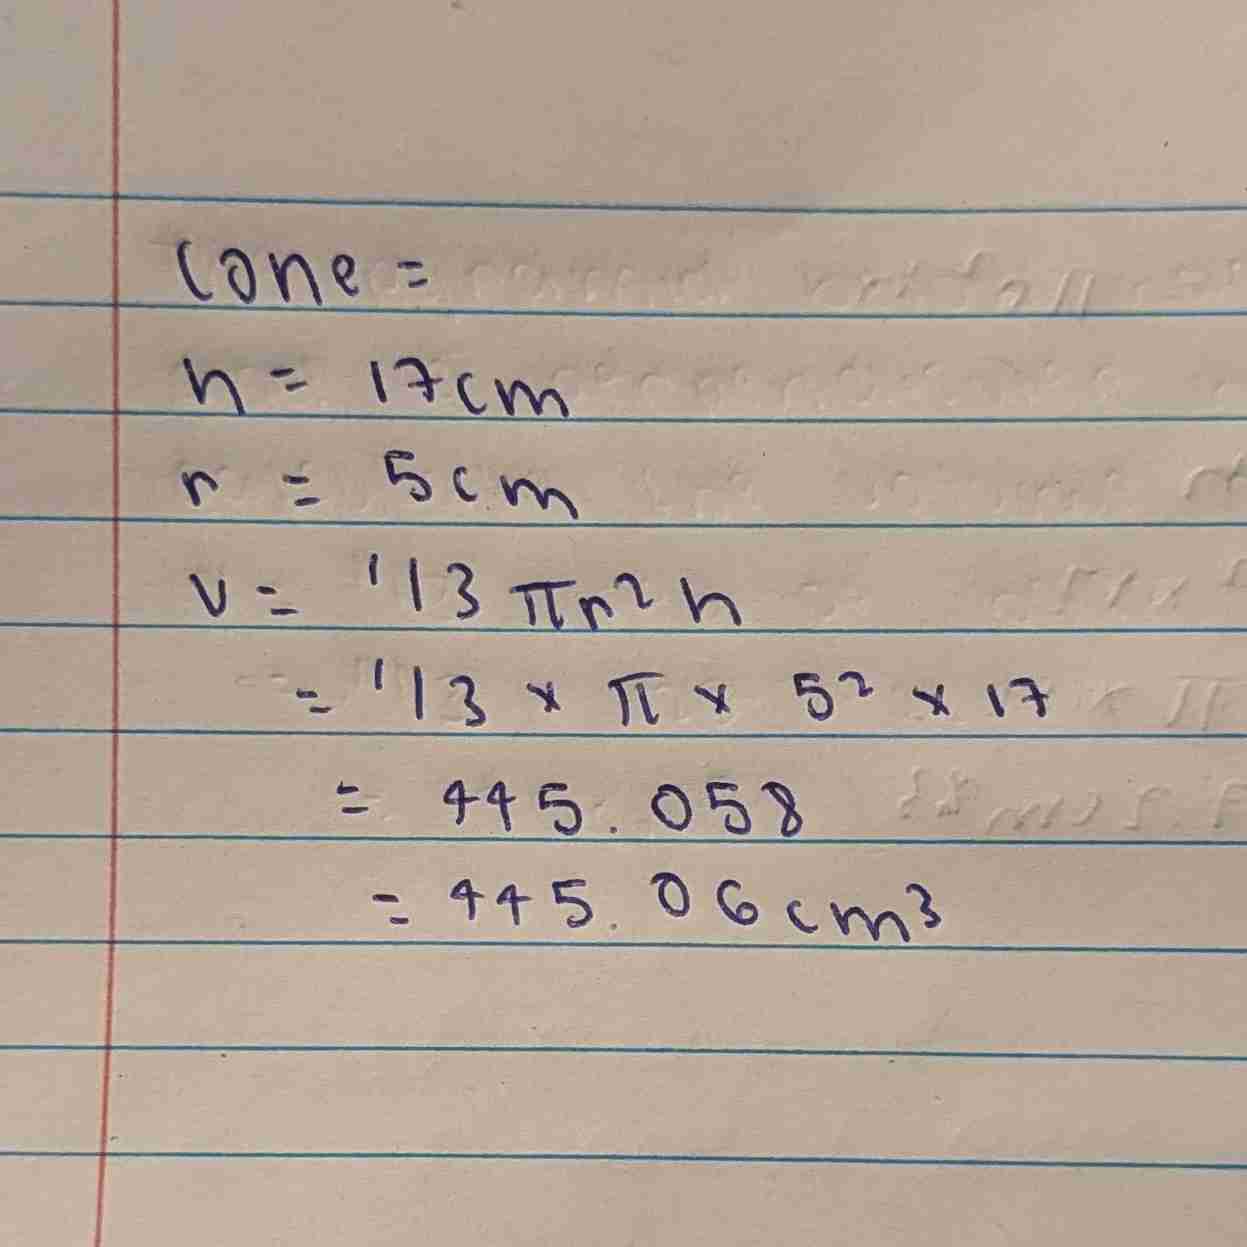 Cone =
h = 17cm
r = 5cm
V = 1/3 πr²h
= 1/3 × π × 5² × 17
= 445.058
= 445.06cm³